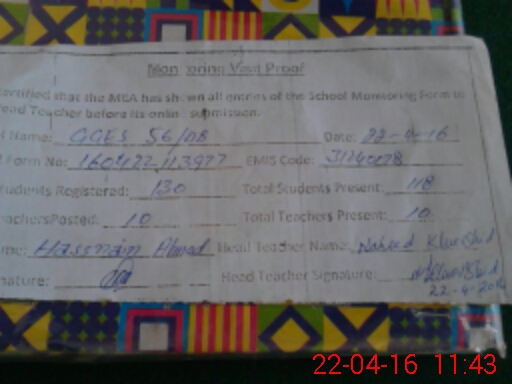 Monitoring Visit Proof
certified that the MEA has shown all entries of the School Monitoring Form to
Head Teacher before its online submission.
Name: GGES 56/DB Date: 22-4-16
Form No: EMIS Code: 31240078
Students Registered: 130 Total Students Present: 118
Teachers Posted: 10 Total Teachers Present: 10
Name: Hassnain Ahmad Head Teacher Name: Naheed Khurshid
Signature: Head Teacher Signature:
22-4-2016
22-04-16 11:43